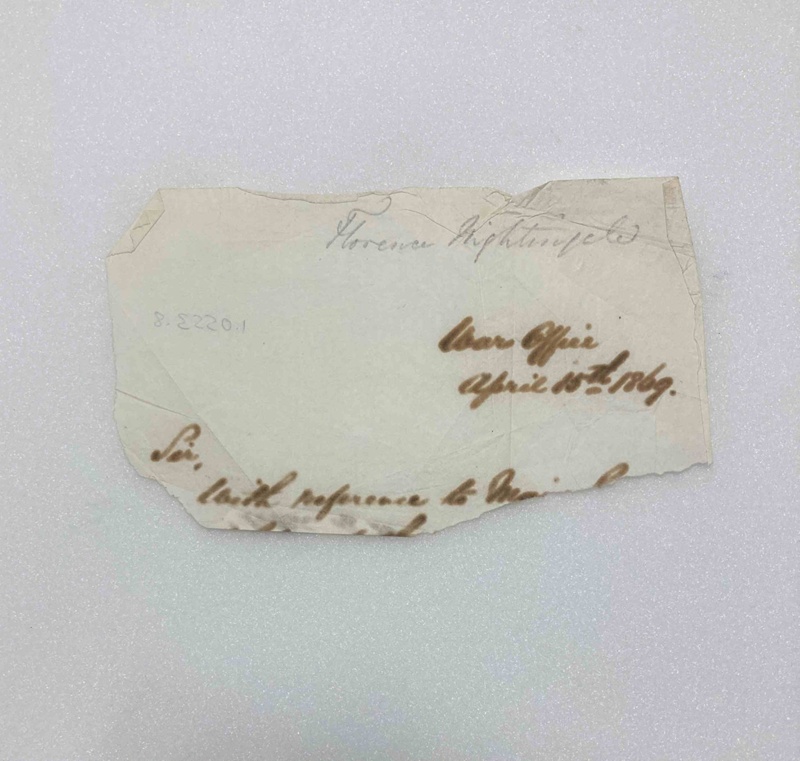 Florence Nightingale
8.E220.1
War Office
April 15th 1869.
Sir,
With reference to